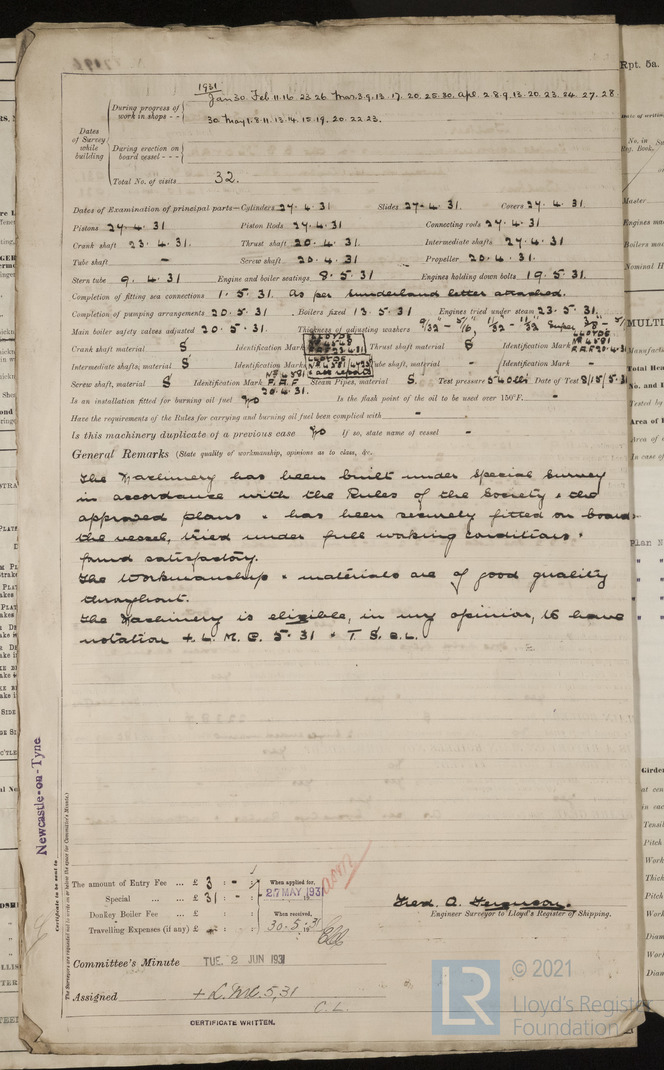 Rpt. 5a.
1931
During progress of work in shops - - Jan 30. Feb 11. 16. 23 26 Mar. 3. 9. 13. 17. 20. 25. 30. Apl. 2. 8. 9. 13. 20. 23. 24. 27. 28
30. May 1. 8. 11. 13. 14. 15. 19. 20. 22. 23.
Dates of Survey while building
During erection on board vessel - - -
Total No. of visits 32.
Dates of Examination of principal parts—Cylinders 27. 4. 31 Slides 27. 4. 31. Covers 27. 4. 31.
Pistons 27. 4. 31 Piston Rods 27. 4. 31 Connecting rods 27. 4. 31
Crank shaft 23. 4. 31. Thrust shaft 20. 4. 31. Intermediate shafts 27. 4. 31
Tube shaft - Screw shaft 20. 4. 31 Propeller 20. 4. 31.
Stern tube 9. 4. 31 Engine and boiler seatings 8. 5. 31 Engines holding down bolts 19. 5. 31.
Completion of fitting sea connections 1. 5. 31. As per Sunderland letter attached.
Completion of pumping arrangements 20. 5. 31 Boilers fixed 13. 5. 31 Engines tried under steam 23. 5. 31.
Main boiler safety valves adjusted 20. 5. 31. Thickness of adjusting washers
Crank shaft material S Identification Mark Thrust shaft material S Identification Mark
Intermediate shafts, material S Identification Marks Tube shaft, material - Identification Mark -
Screw shaft, material S Identification Mark Steam Pipes, material S. Test pressure 540 lbs Date of Test
20. 4. 31.
Is an installation fitted for burning oil fuel No Is the flash point of the oil to be used over 150°F. -
Have the requirements of the Rules for carrying and burning oil fuel been complied with -
Is this machinery duplicate of a previous case No If so, state name of vessel -
General Remarks (State quality of workmanship, opinions as to class, &c.
The Machinery has been built under Special Survey
in accordance with the Rules of the Society & the
approved plans & has been securely fitted on board
the vessel, tried under full working conditions &
found satisfactory.
The Workmanship & materials are of good quality
throughout.
The Machinery is eligible, in my opinion, to have
notation + L. M. C. 5. 31 & T. S. C.L.
Newcastle-on-Tyne
Certificate to be sent to
The Surveyors are requested not to write on or below the space for Committee's Minute.
The amount of Entry Fee ... £ 3 : - : When applied for,
Special ... £ 31 : - : 27 MAY 1931
Donkey Boiler Fee ... £ : : When received,
Travelling Expenses (if any) £ - : : 30. 5. 31
Fred. A. Ferguson.
Engineer Surveyor to Lloyd's Register of Shipping.
Committee's Minute TUE. 2 JUN 1931
Assigned + L.M.C. 5,31
C. L.
CERTIFICATE WRITTEN.
LR
© 2021
Lloyd's Register
Foundation